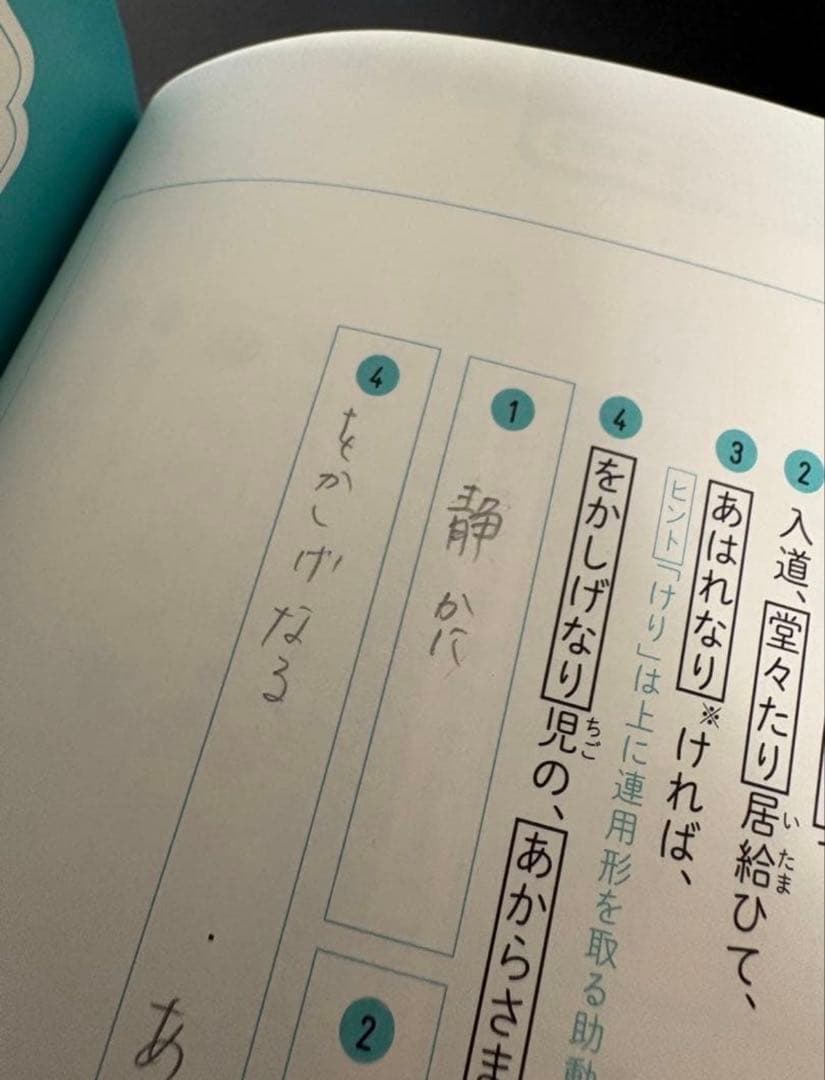 2 入道、堂々たり居給ひて、
いたま
3 あはれなり※ければ、
ヒント「けり」は上に連用形を取る助動
4 をかしげなり児の、あからさま
ちご
1 静かに
2
4 をかしげなる
あ